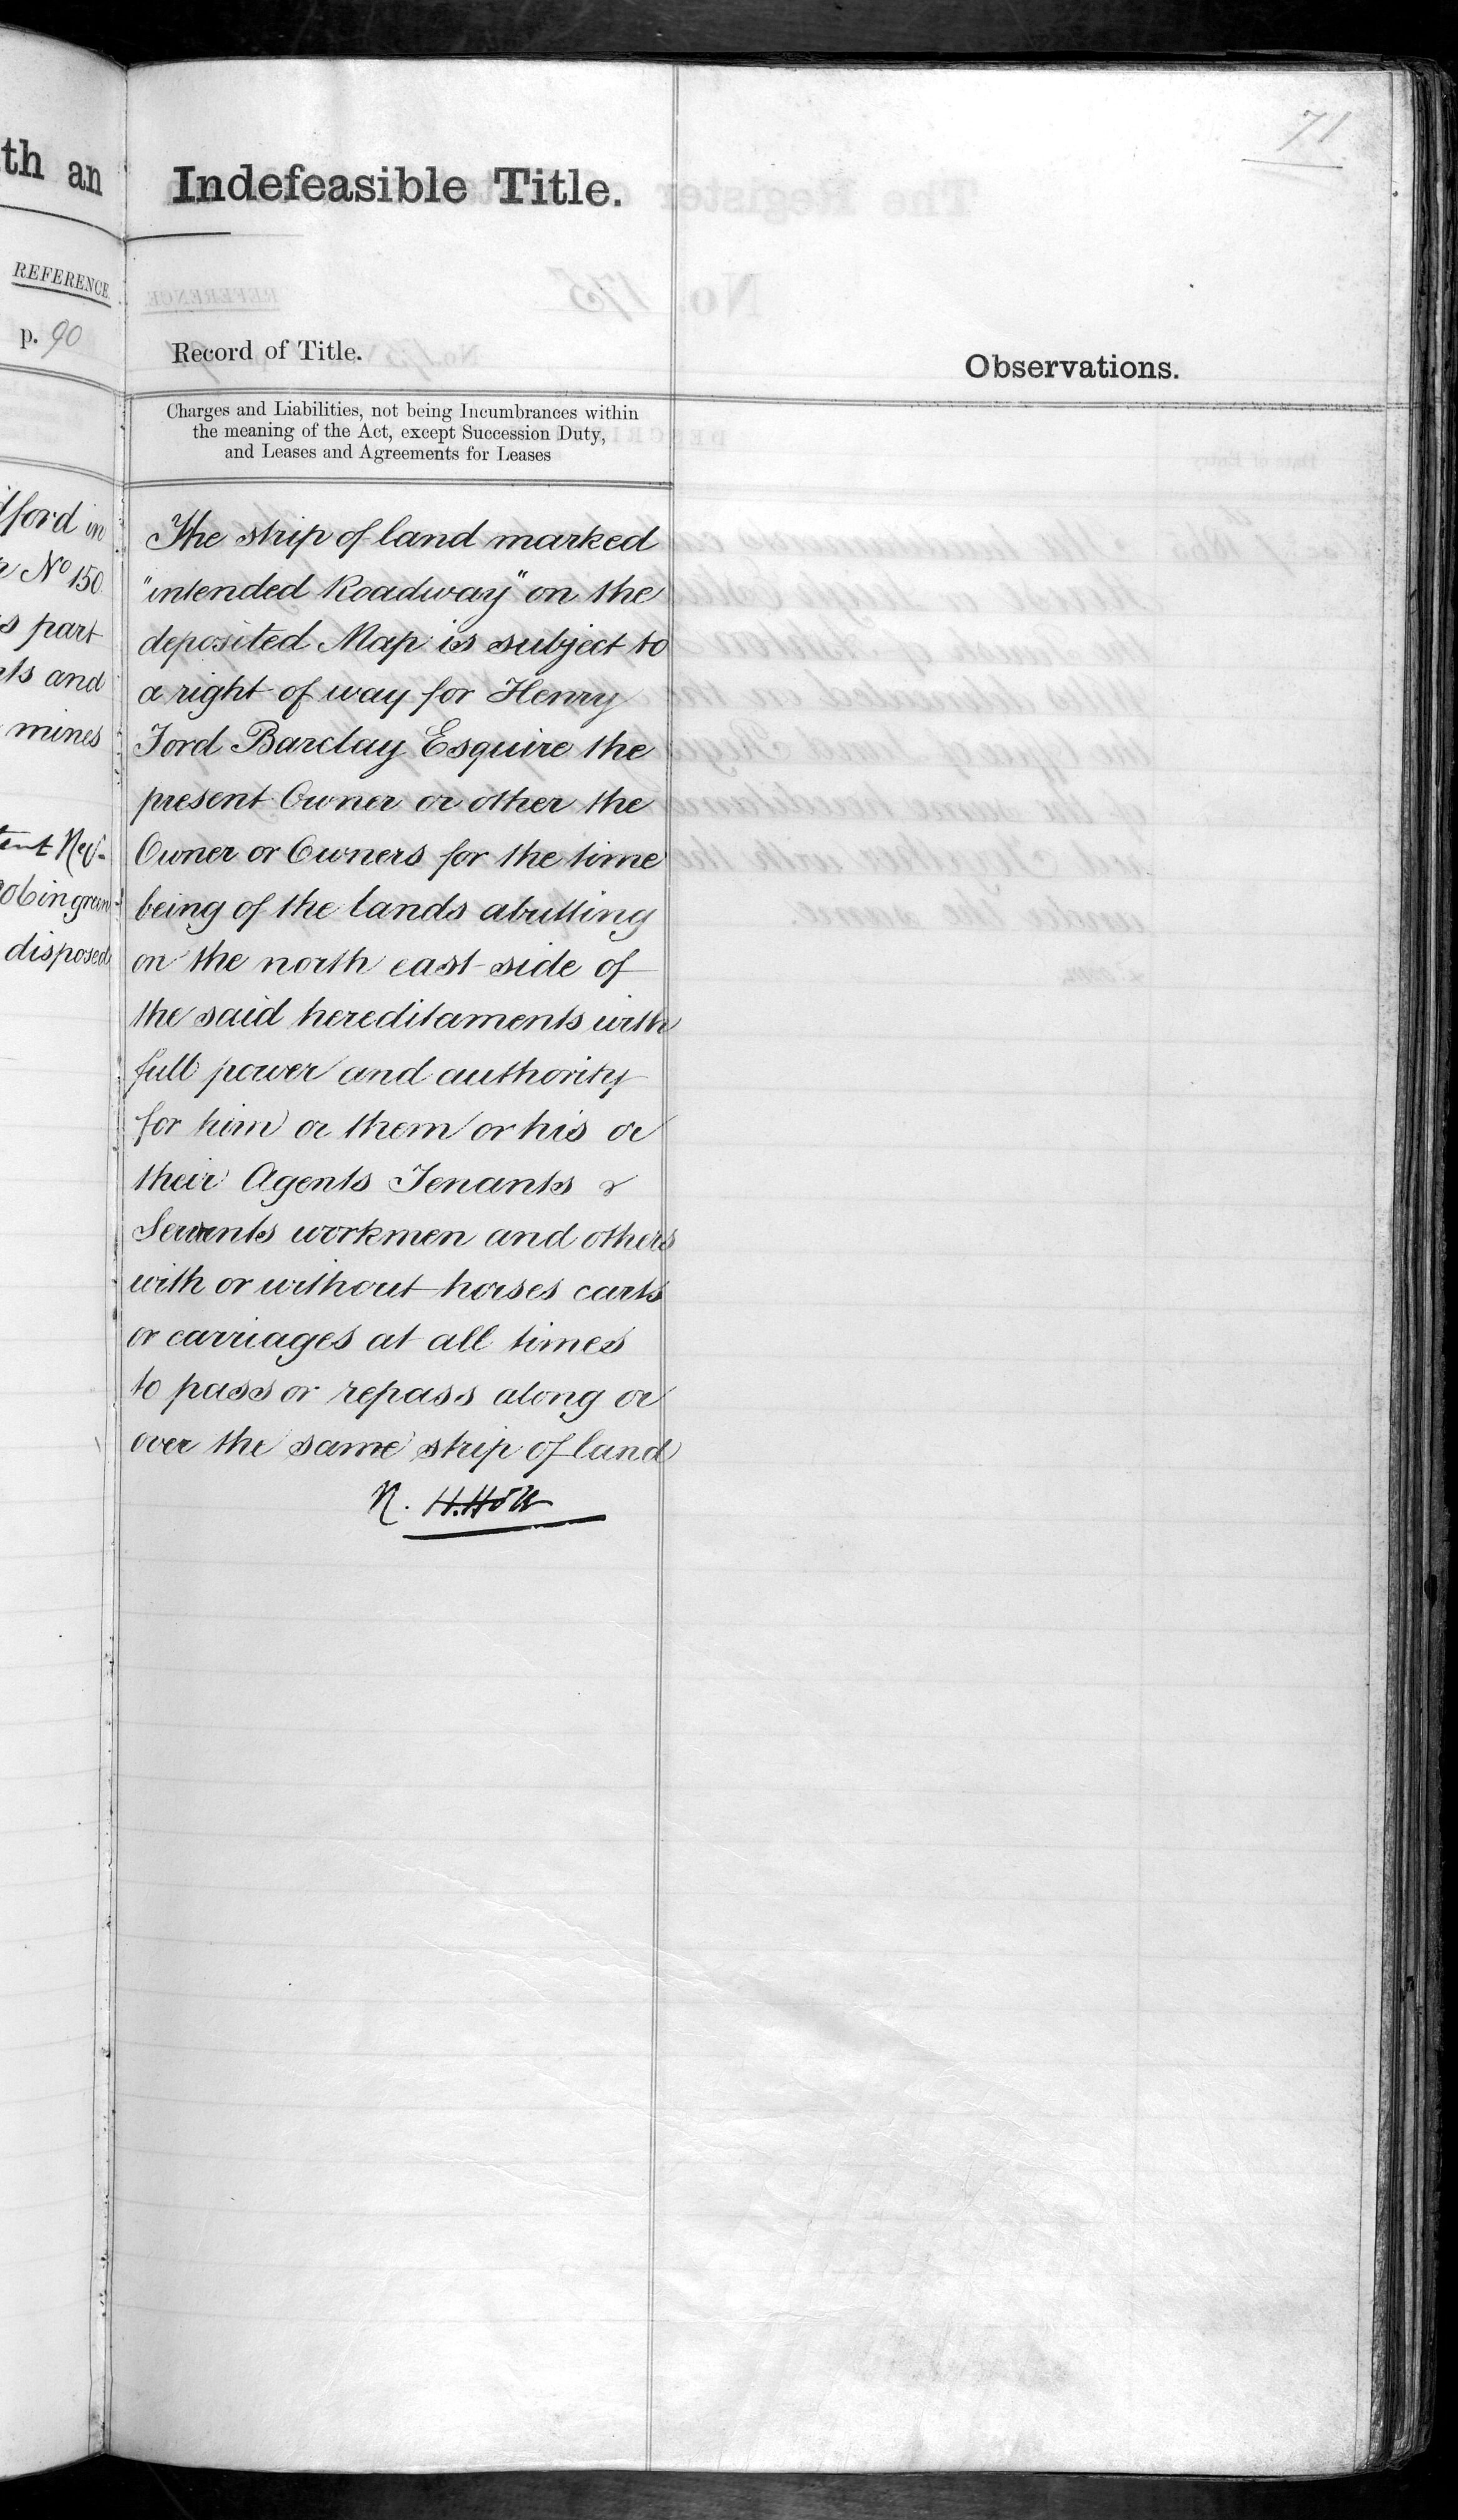 71
th an
REFERENCE
p. 90
ford in
No 150
s part
ts and
mines
disposed
Indefeasible Title.
Record of Title.
Charges and Liabilities, not being Incumbrances within
the meaning of the Act, except Succession Duty,
and Leases and Agreements for Leases
The strip of land marked
"intended Roadway" on the
deposited Map is subject to
a right of way for Henry
Ford Barclay Esquire the
present Owner or other the
Owner or Owners for the time
being of the lands abutting
on the north east side of
the said hereditaments with
full power and authority
for him or them or his or
their Agents Tenants &
Servants workmen and others
with or without horses carts
or carriages at all times
to pass or repass along or
over the same strip of land
Observations.